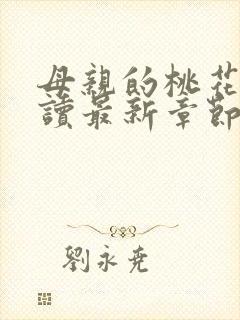 母親的桃花
讀最新章節
劉永堯